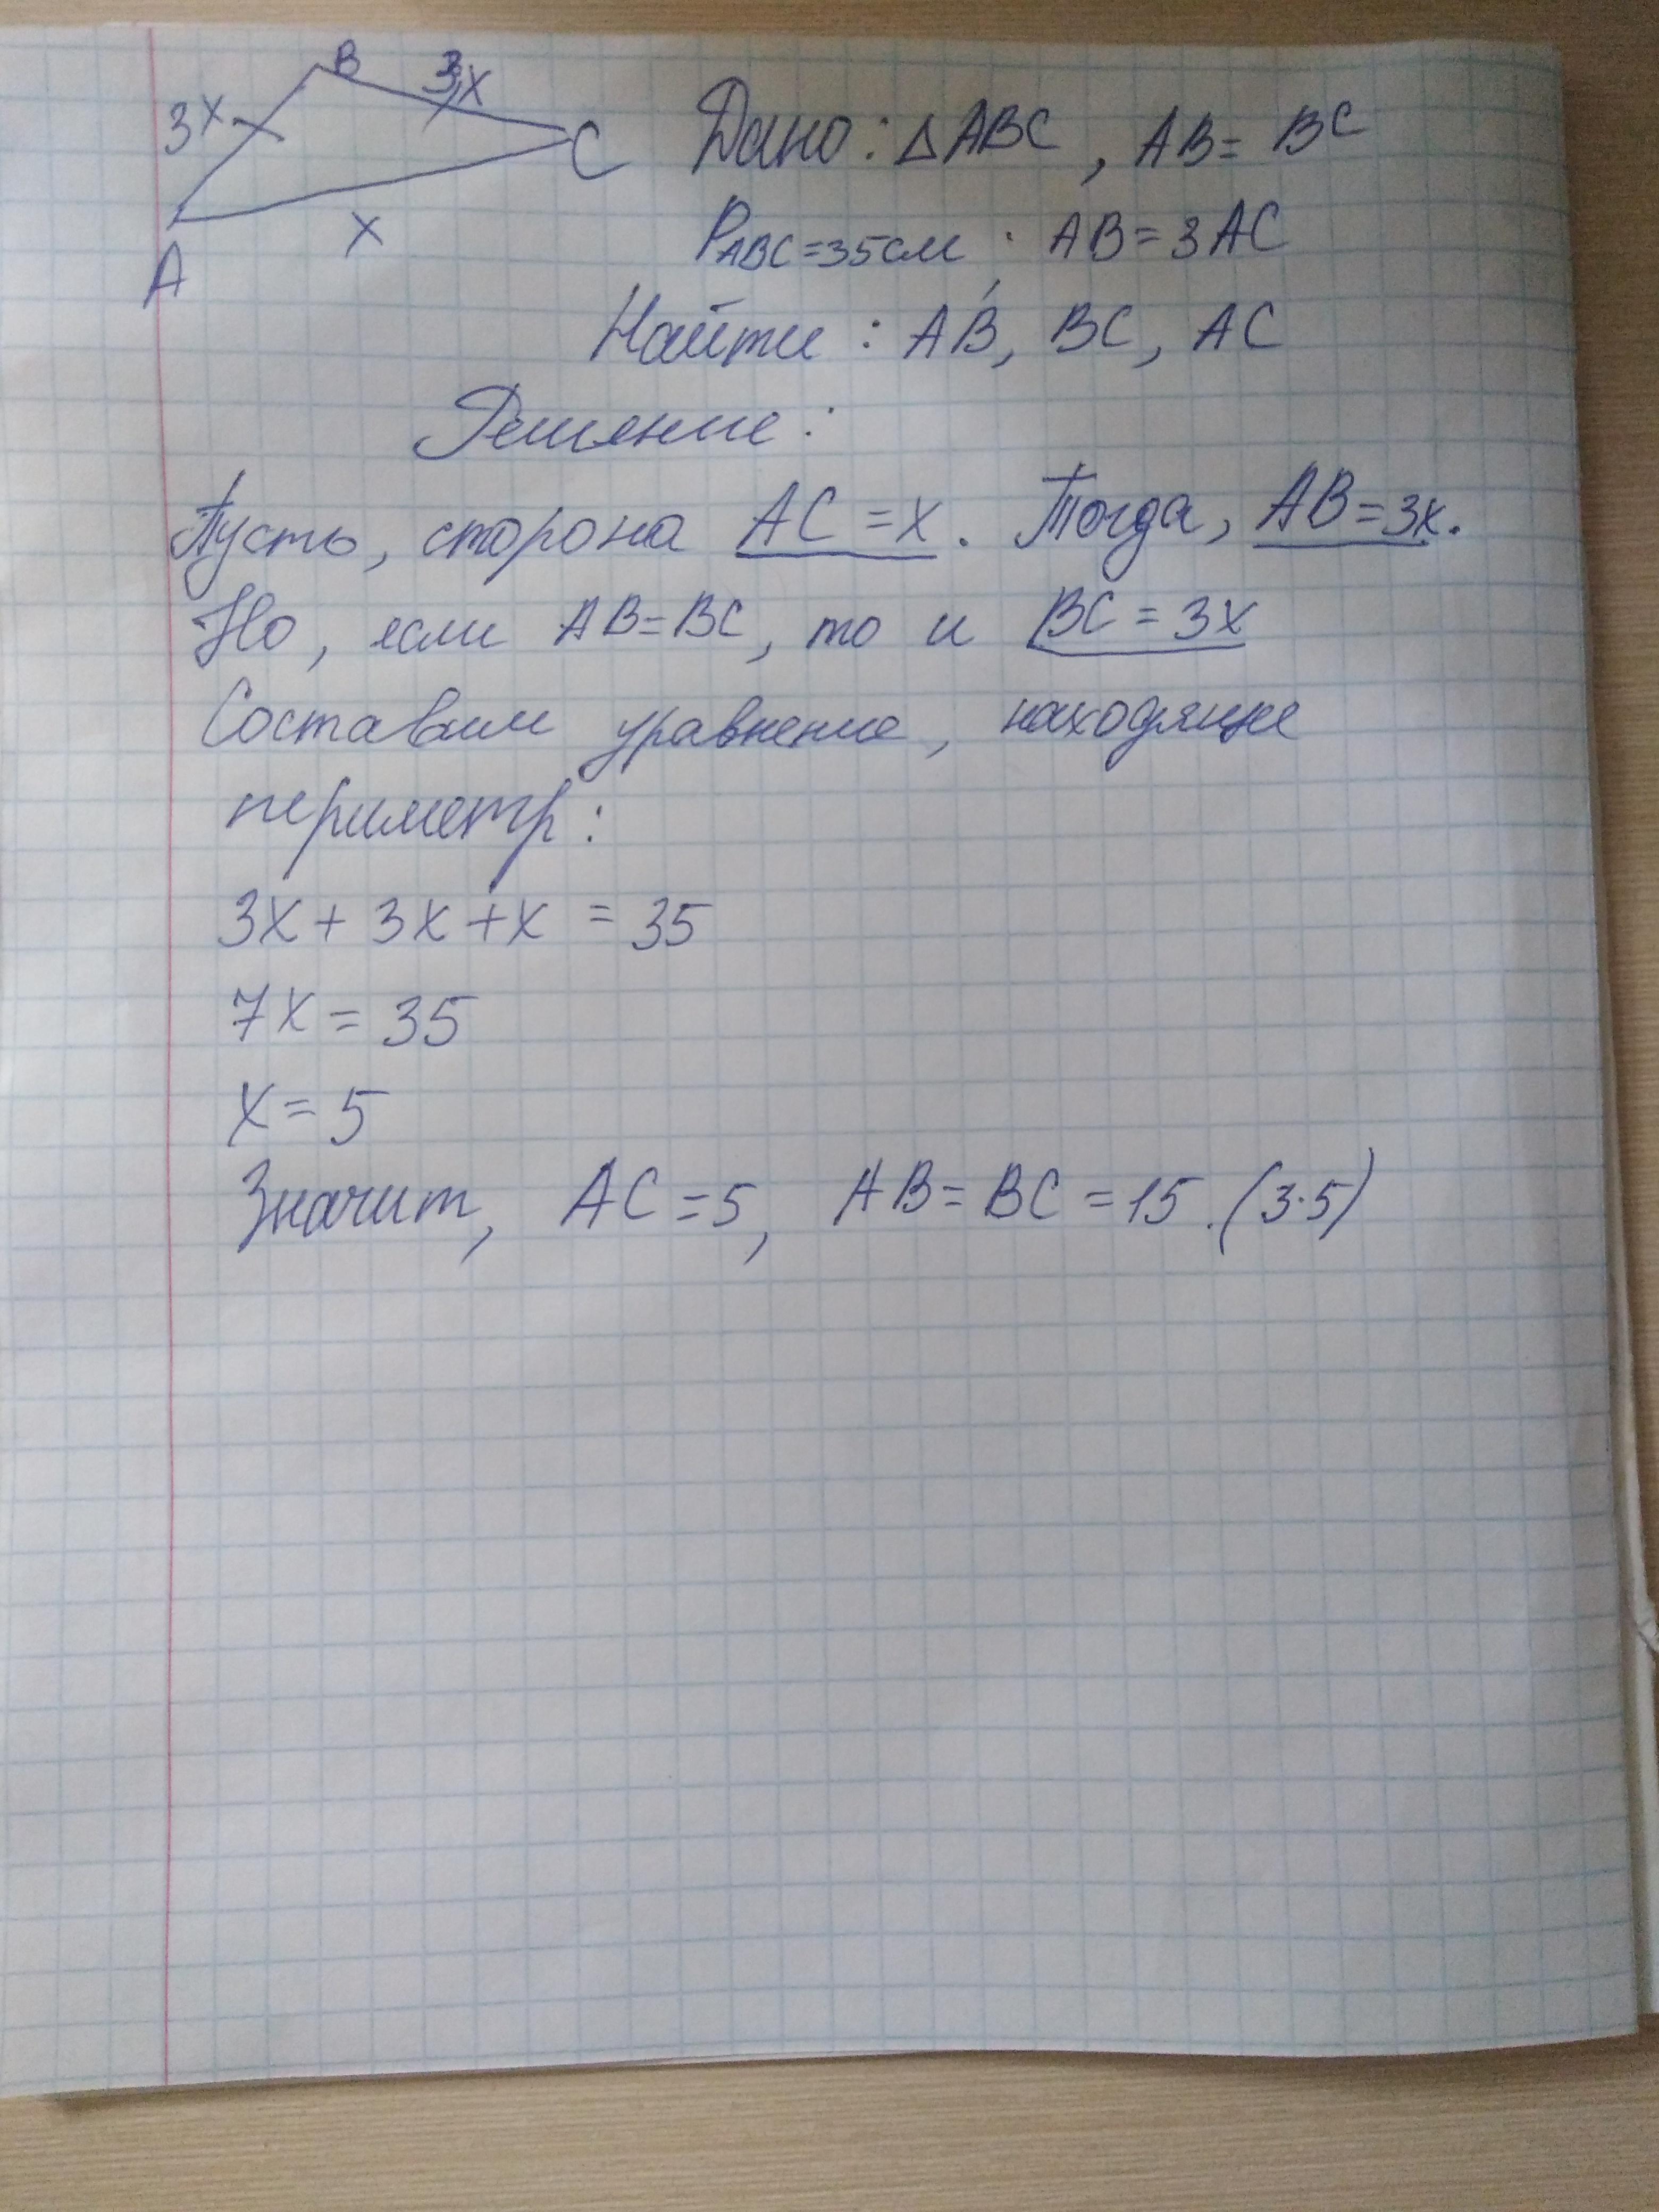 B
3x
3x
C
x
A
Дано: △ABC, AB = BC
P_ABC = 35см, AB = 3AC
Найти: AB, BC, AC
Решение:
Пусть, сторона AC = x. Тогда, AB = 3x.
Но, если AB = BC, то и BC = 3x
Составим уравнение, находящее
периметр:
3x + 3x + x = 35
7x = 35
x = 5
Значит, AC = 5, AB = BC = 15. (3·5)